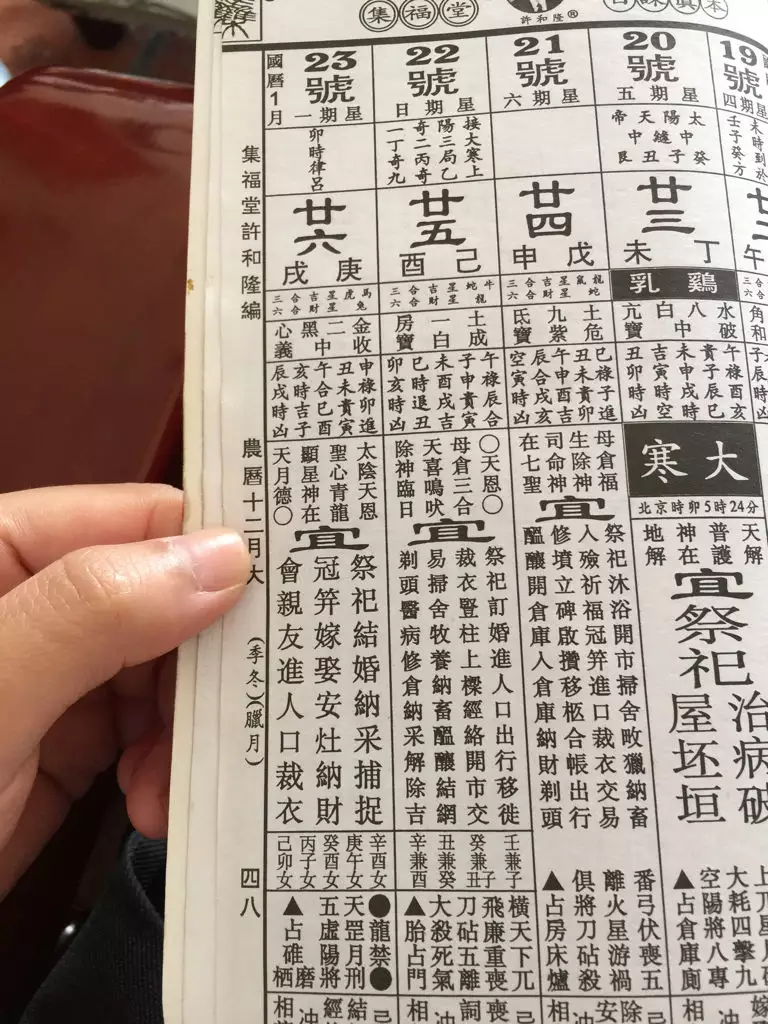 集福堂
許和隆®
19號
四期星
未時到於
壬子癸方
20號
五期星
太陽天帝
中縫中
癸子丑艮
廿三
未 丁
鷄乳
水破
八中
白
亢寶
午祿辰巳
貴子巳
未申戌時
吉寅時空
丑卯時凶
大寒
北京時卯5時24分
天解
普護
神在
地解
宜
祭祀
治病破
屋坯垣
▲占倉庫廁
21號
六期星
廿四
申 戊
龍蛇
鼠
星星
吉財
合合
三六
土危
九紫
氐寶
巳祿子進
丑未貴卯
午申酉吉
辰合戌亥
空寅時凶
母倉福
生除神
司命神
在七聖
宜
祭祀沐浴開市掃舍畋獵納畜
入殮祈福冠笄進口裁衣交易
修墳立碑啟攢移柩合帳出行
醞釀開倉庫入倉庫納財剃頭
番弓伏喪五
離火星游禍
俱將刀砧殺
▲占房床爐
22號
日期星
接大寒上
陽三局乙
奇二丙奇
一丁奇九
廿五
酉 己
牛龍
蛇
星星
吉財
合合
三六
土成
一白
房寶
午祿辰合
子申貴寅
未酉戌吉
巳時退丑
卯亥時凶
○天恩○
母倉三合
天喜鳴吠
除神臨日
宜
祭祀訂婚進人口出行移徙
裁衣豎柱上樑經絡開市交
易掃舍牧養納畜醞釀結網
剃頭醫病修倉納采解除吉
壬兼子
癸兼丑子
丑兼癸
辛兼酉
橫天下兀
飛廉重喪
刀砧五離
大殺死氣
▲胎占門
23號
一期星
國曆1月
卯時律呂
廿六
戌 庚
馬兔
虎
星星
吉財
合合
三六
金收
二黑中
心義
申祿卯進
丑未貴寅
午合巳酉
亥時吉子
辰戌時凶
太陰天恩
聖心青龍
顯星神在
天月德○
宜
祭祀結婚納采捕捉
冠笄嫁娶安灶納財
會親友進人口裁衣
辛酉女
庚午女
癸酉女
丙子女
己卯女
●龍禁●
天罡月刑
五虛陽將
▲占碓磨栖
集福堂許和隆編
農曆十二月大
(季冬)(臘月)
四八